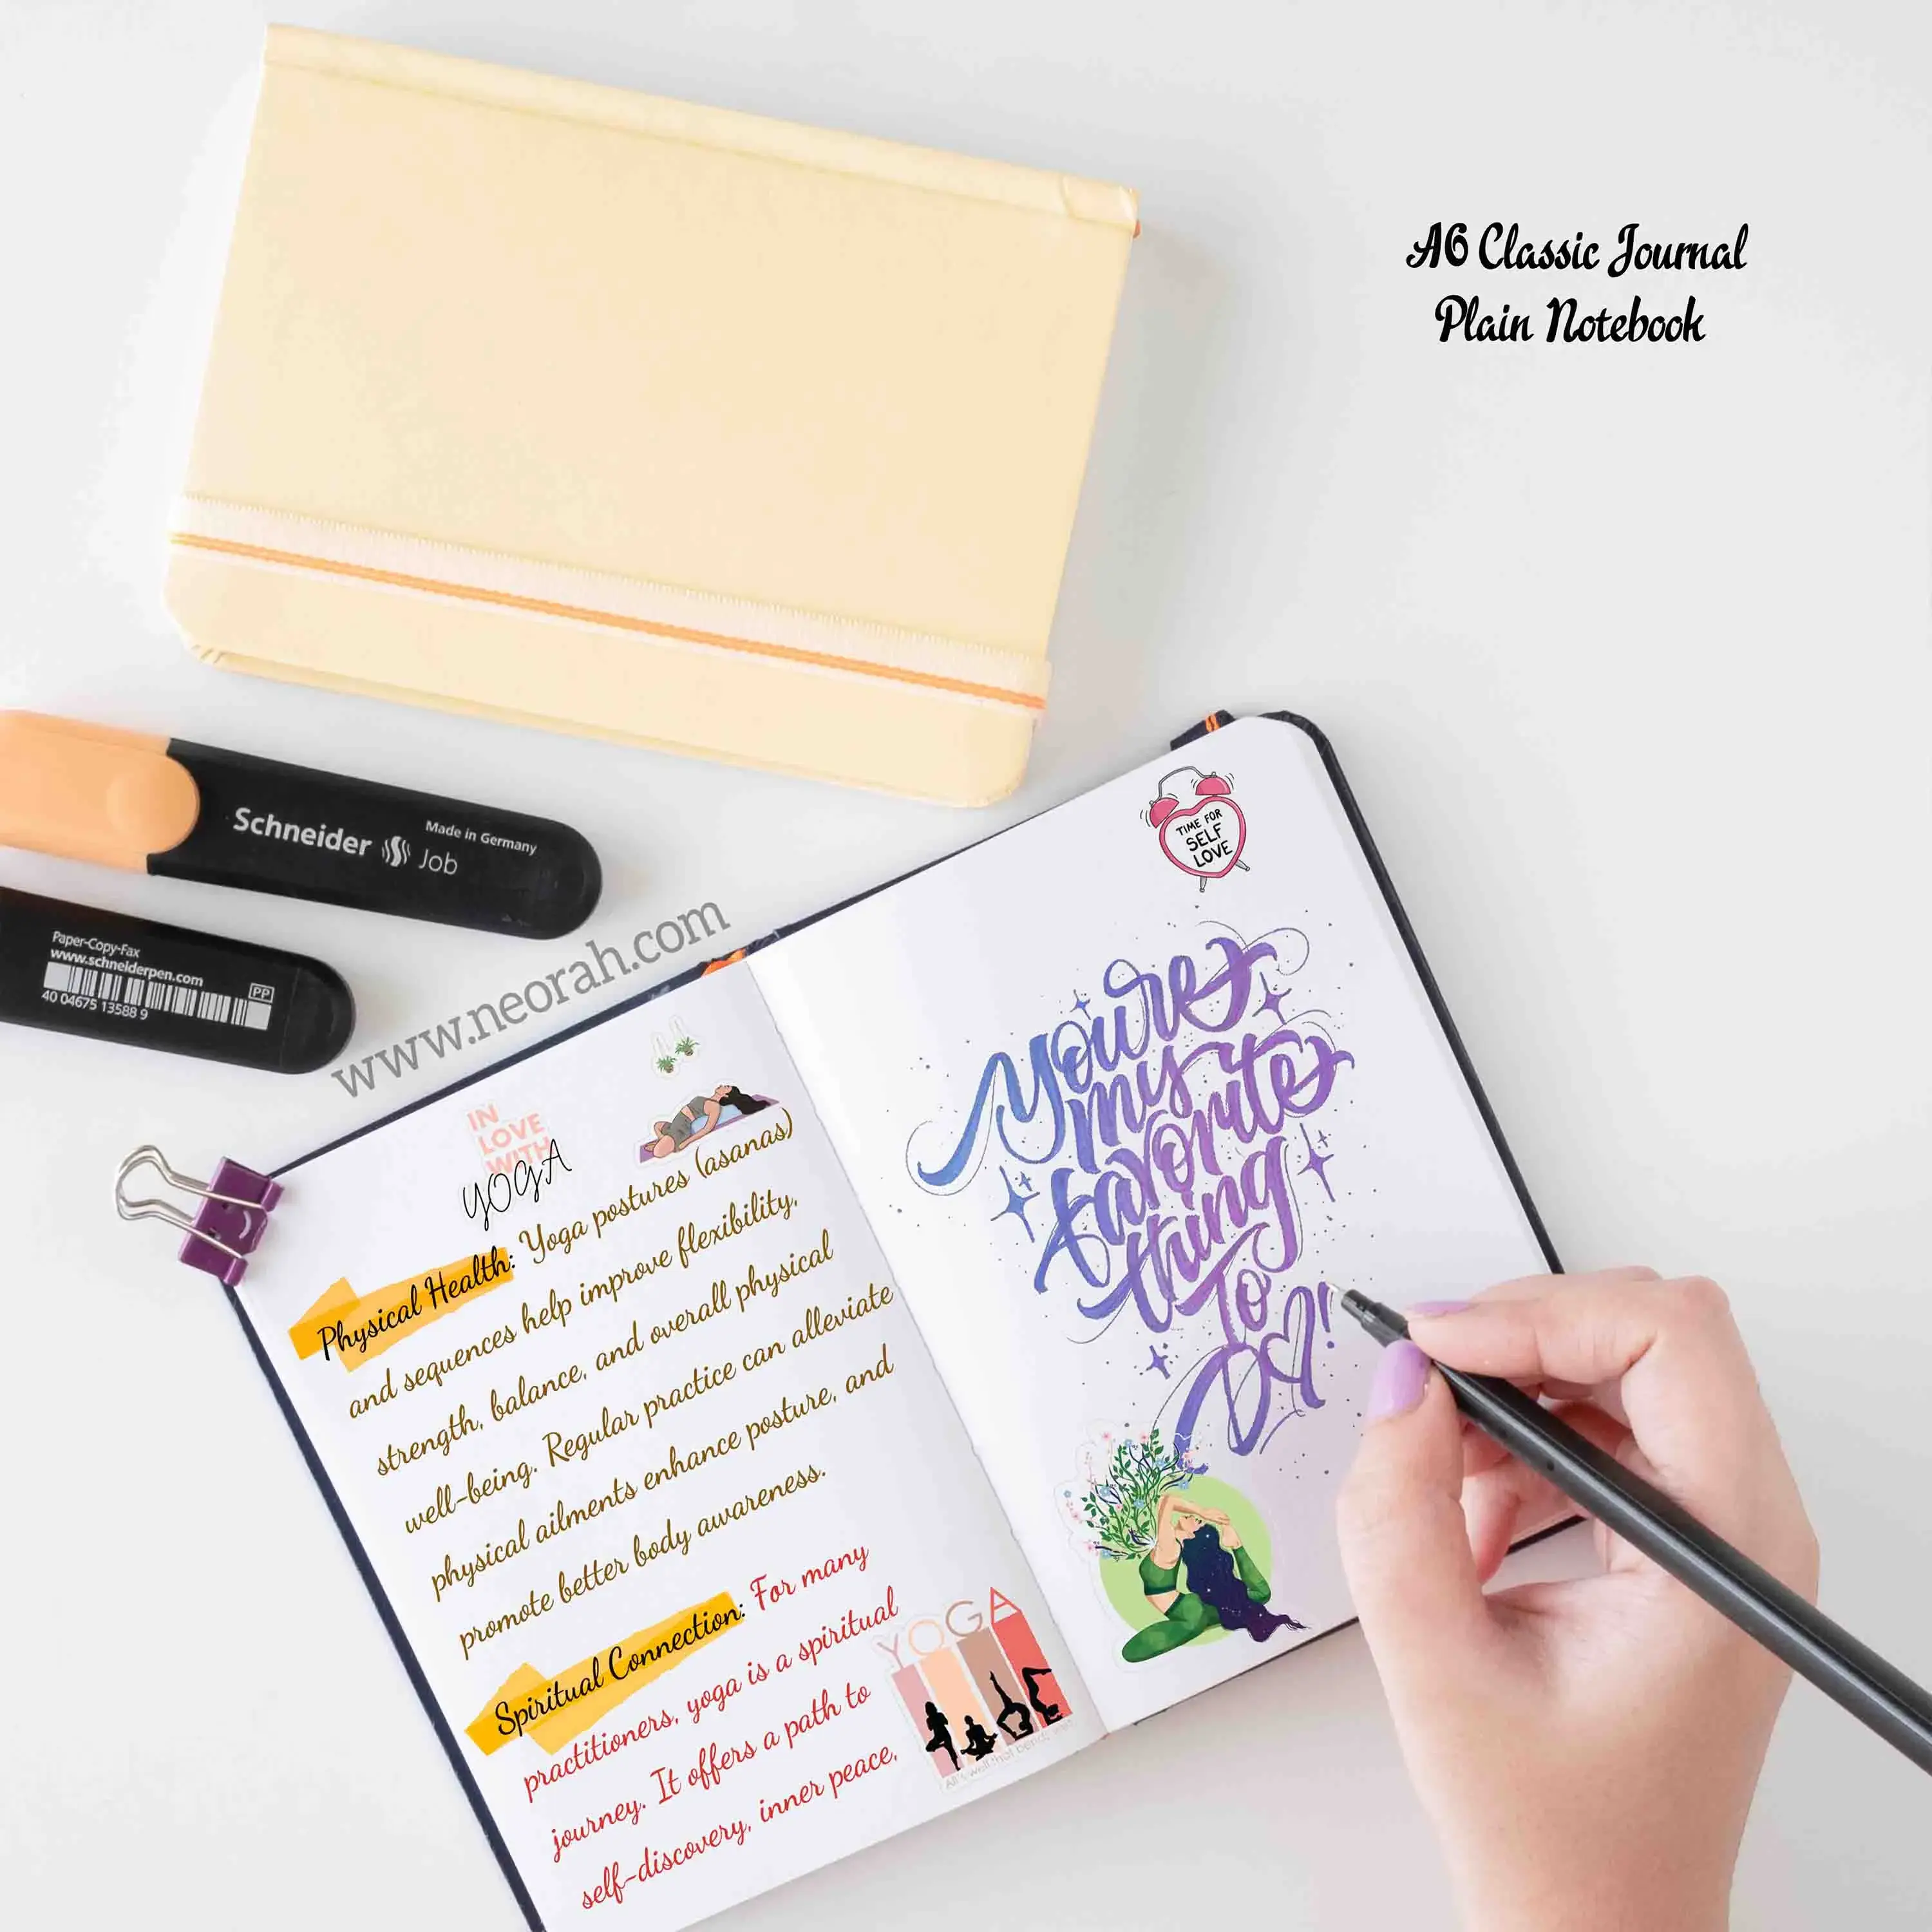 A6 Classic Journal
Plain Notebook
Schneider Job
Made in Germany
Paper-Copy-Fax
www.schneiderpen.com
40 04675 13588 9
PP
www.neorah.com
IN
LOVE
WITH
YOGA
Physical Health: Yoga postures (asanas)
and sequences help improve flexibility,
strength, balance, and overall physical
well-being. Regular practice can alleviate
physical ailments enhance posture, and
promote better body awareness.
Spiritual Connection: For many
practitioners, yoga is a spiritual
journey. It offers a path to
self-discovery, inner peace,
YOGA
All's well that bends
TIME FOR
SELF
LOVE
You're
my
favorite
thing
To
DO!